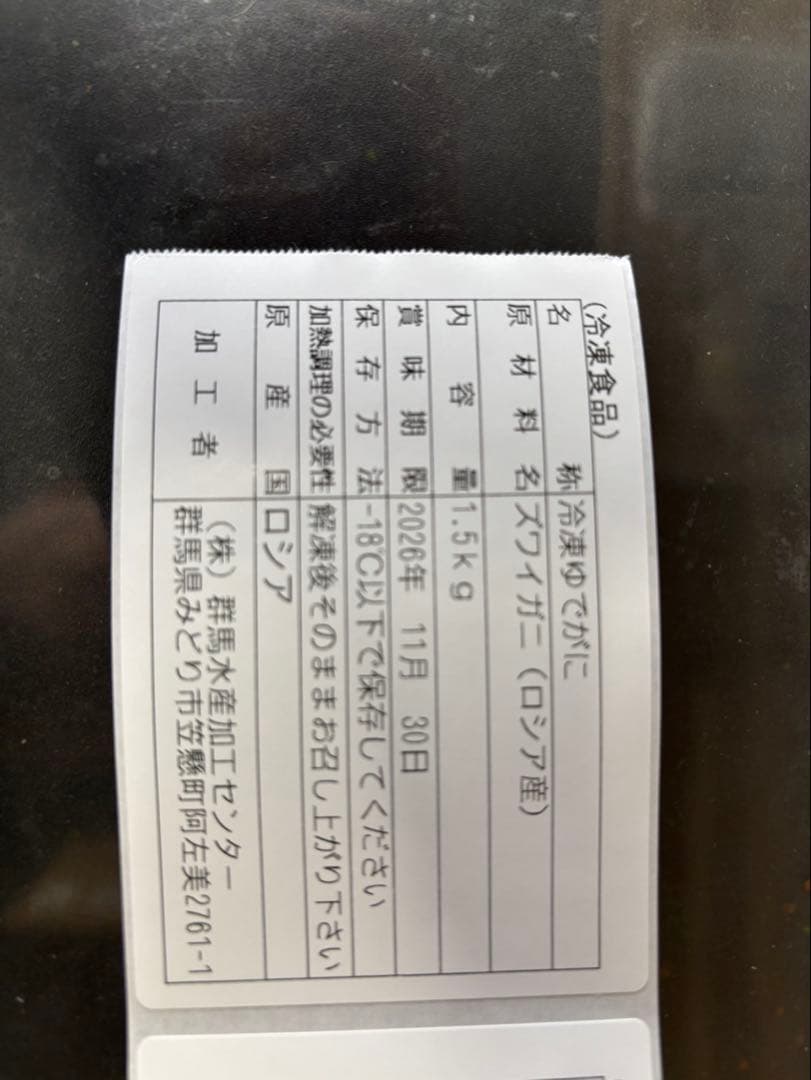 (冷凍食品)
名称 冷凍ゆでがに
原材料名 ズワイガニ(ロシア産)
内容量 1.5kg
賞味期限 2026年 11月 30日
保存方法 -18℃以下で保存してください
加熱調理の必要性 解凍後そのままお召し上がり下さい
原産国 ロシア
加工者 (株)群馬水産加工センター
群馬県みどり市笠懸町阿左美2761-1